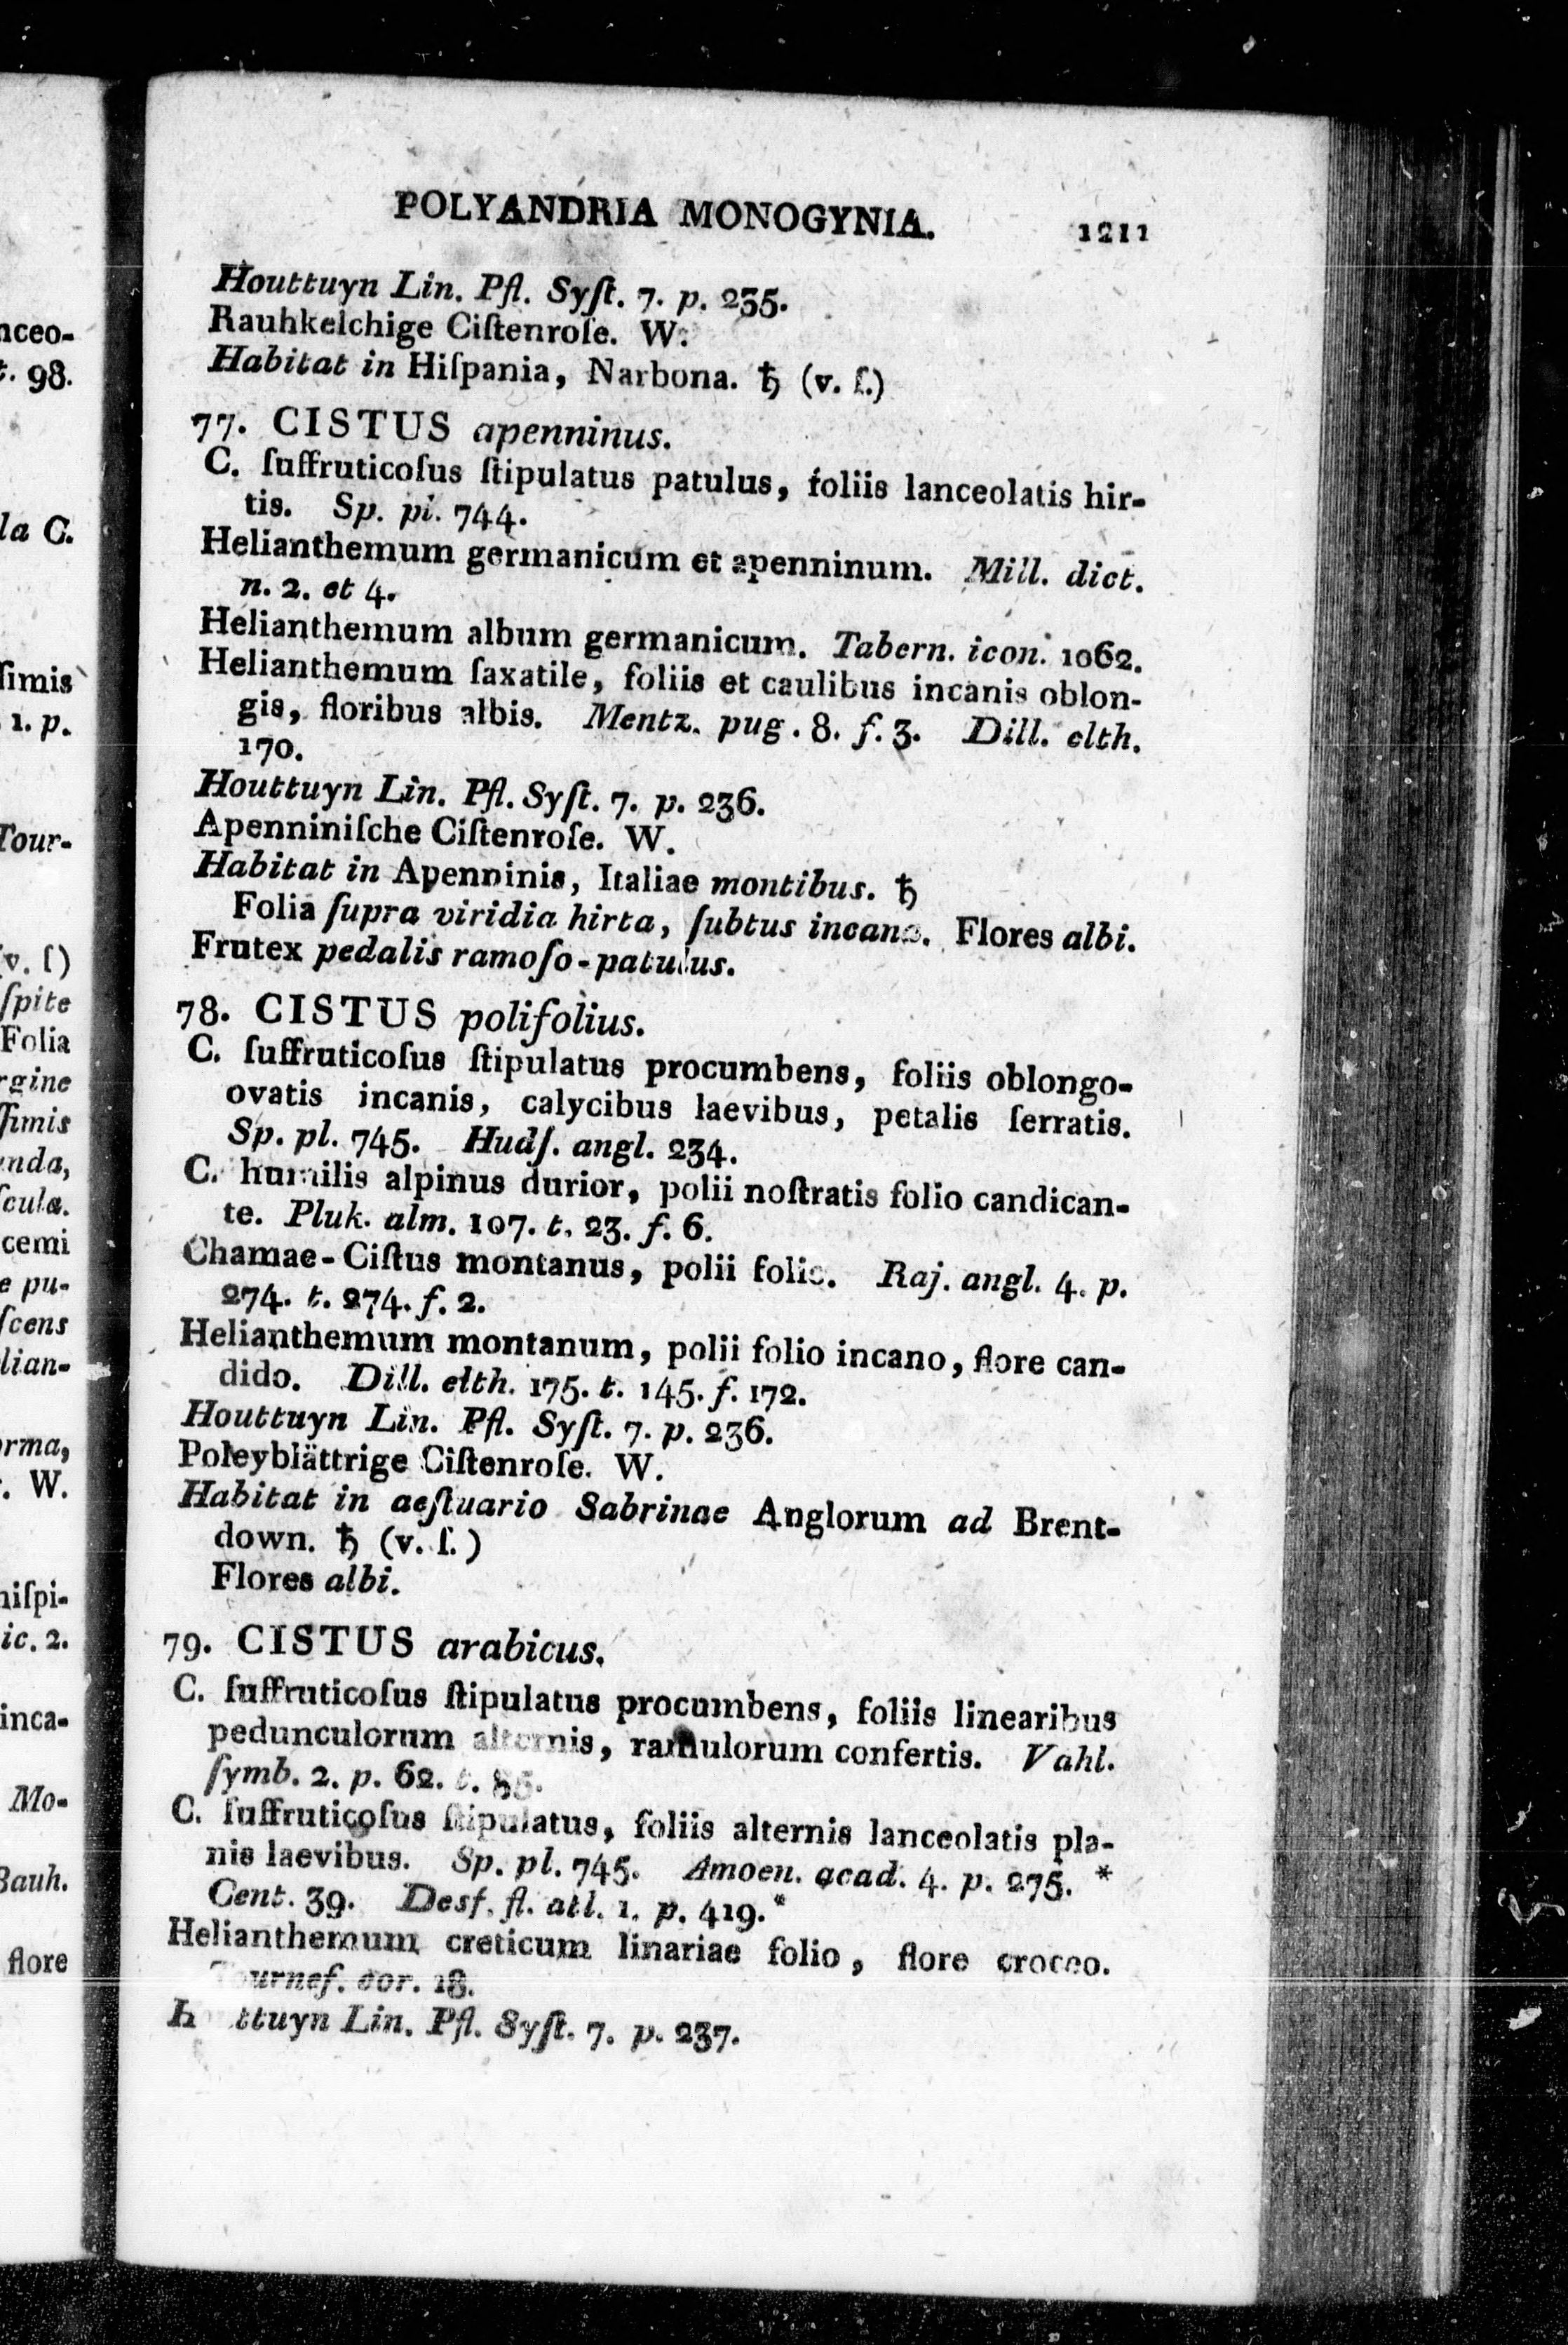 POLYANDRIA MONOGYNIA. 1211
Houttuyn Lin. Pfl. Syſt. 7. p. 235.
Rauhkelchige Ciſtenroſe. W.
Habitat in Hiſpania, Narbona. ♄ (v. ſ.)
77. CISTUS apenninus.
C. ſuffruticoſus ſtipulatus patulus, foliis lanceolatis hir-
tis. Sp. pl. 744.
Helianthemum germanicum et apenninum. Mill. dict.
n. 2. et 4.
Helianthemum album germanicum. Tabern. icon. 1062.
Helianthemum ſaxatile, foliis et caulibus incanis oblon-
gis, floribus albis. Mentz. pug. 8. f. 3. Dill. elth.
170.
Houttuyn Lin. Pfl. Syſt. 7. p. 236.
Apenniniſche Ciſtenroſe. W.
Habitat in Apenninis, Italiae montibus. ♄
Folia ſupra viridia hirta, ſubtus incana. Flores albi.
Frutex pedalis ramoſo-patulus.
78. CISTUS polifolius.
C. ſuffruticoſus ſtipulatus procumbens, foliis oblongo-
ovatis incanis, calycibus laevibus, petalis ſerratis.
Sp. pl. 745. Hudſ. angl. 234.
C. humilis alpinus durior, polii noſtratis folio candican-
te. Pluk. alm. 107. t. 23. f. 6.
Chamae-Ciſtus montanus, polii folio. Raj. angl. 4. p.
274. t. 274. f. 2.
Helianthemum montanum, polii folio incano, flore can-
dido. Dill. elth. 175. t. 145. f. 172.
Houttuyn Lin. Pfl. Syſt. 7. p. 236.
Poleyblättrige Ciſtenroſe. W.
Habitat in aeſtuario Sabrinae Anglorum ad Brent-
down. ♄ (v. ſ.)
Flores albi.
79. CISTUS arabicus.
C. ſuffruticoſus ſtipulatus procumbens, foliis linearibus
pedunculorum alternis, ramulorum confertis. Vahl.
ſymb. 2. p. 62. t. 35.
C. ſuffruticoſus ſtipulatus, foliis alternis lanceolatis pla-
nis laevibus. Sp. pl. 745. Amoen. acad. 4. p. 275. *
Cent. 39. Desf. fl. atl. 1. p. 419.*
Helianthemum creticum linariae folio, flore croceo.
Tournef. cor. 18.
Houttuyn Lin. Pfl. Syſt. 7. p. 237.
nceo-
t. 98.
la C.
ſimis
1. p.
Tour-
(v. ſ)
ſpite
Folia
rgine
ſſimis
nda,
ſcula.
cemi
e pu-
ſcens
lian-
orma,
. W.
hiſpi-
ic. 2.
inca-
Mo-
Bauh.
flore